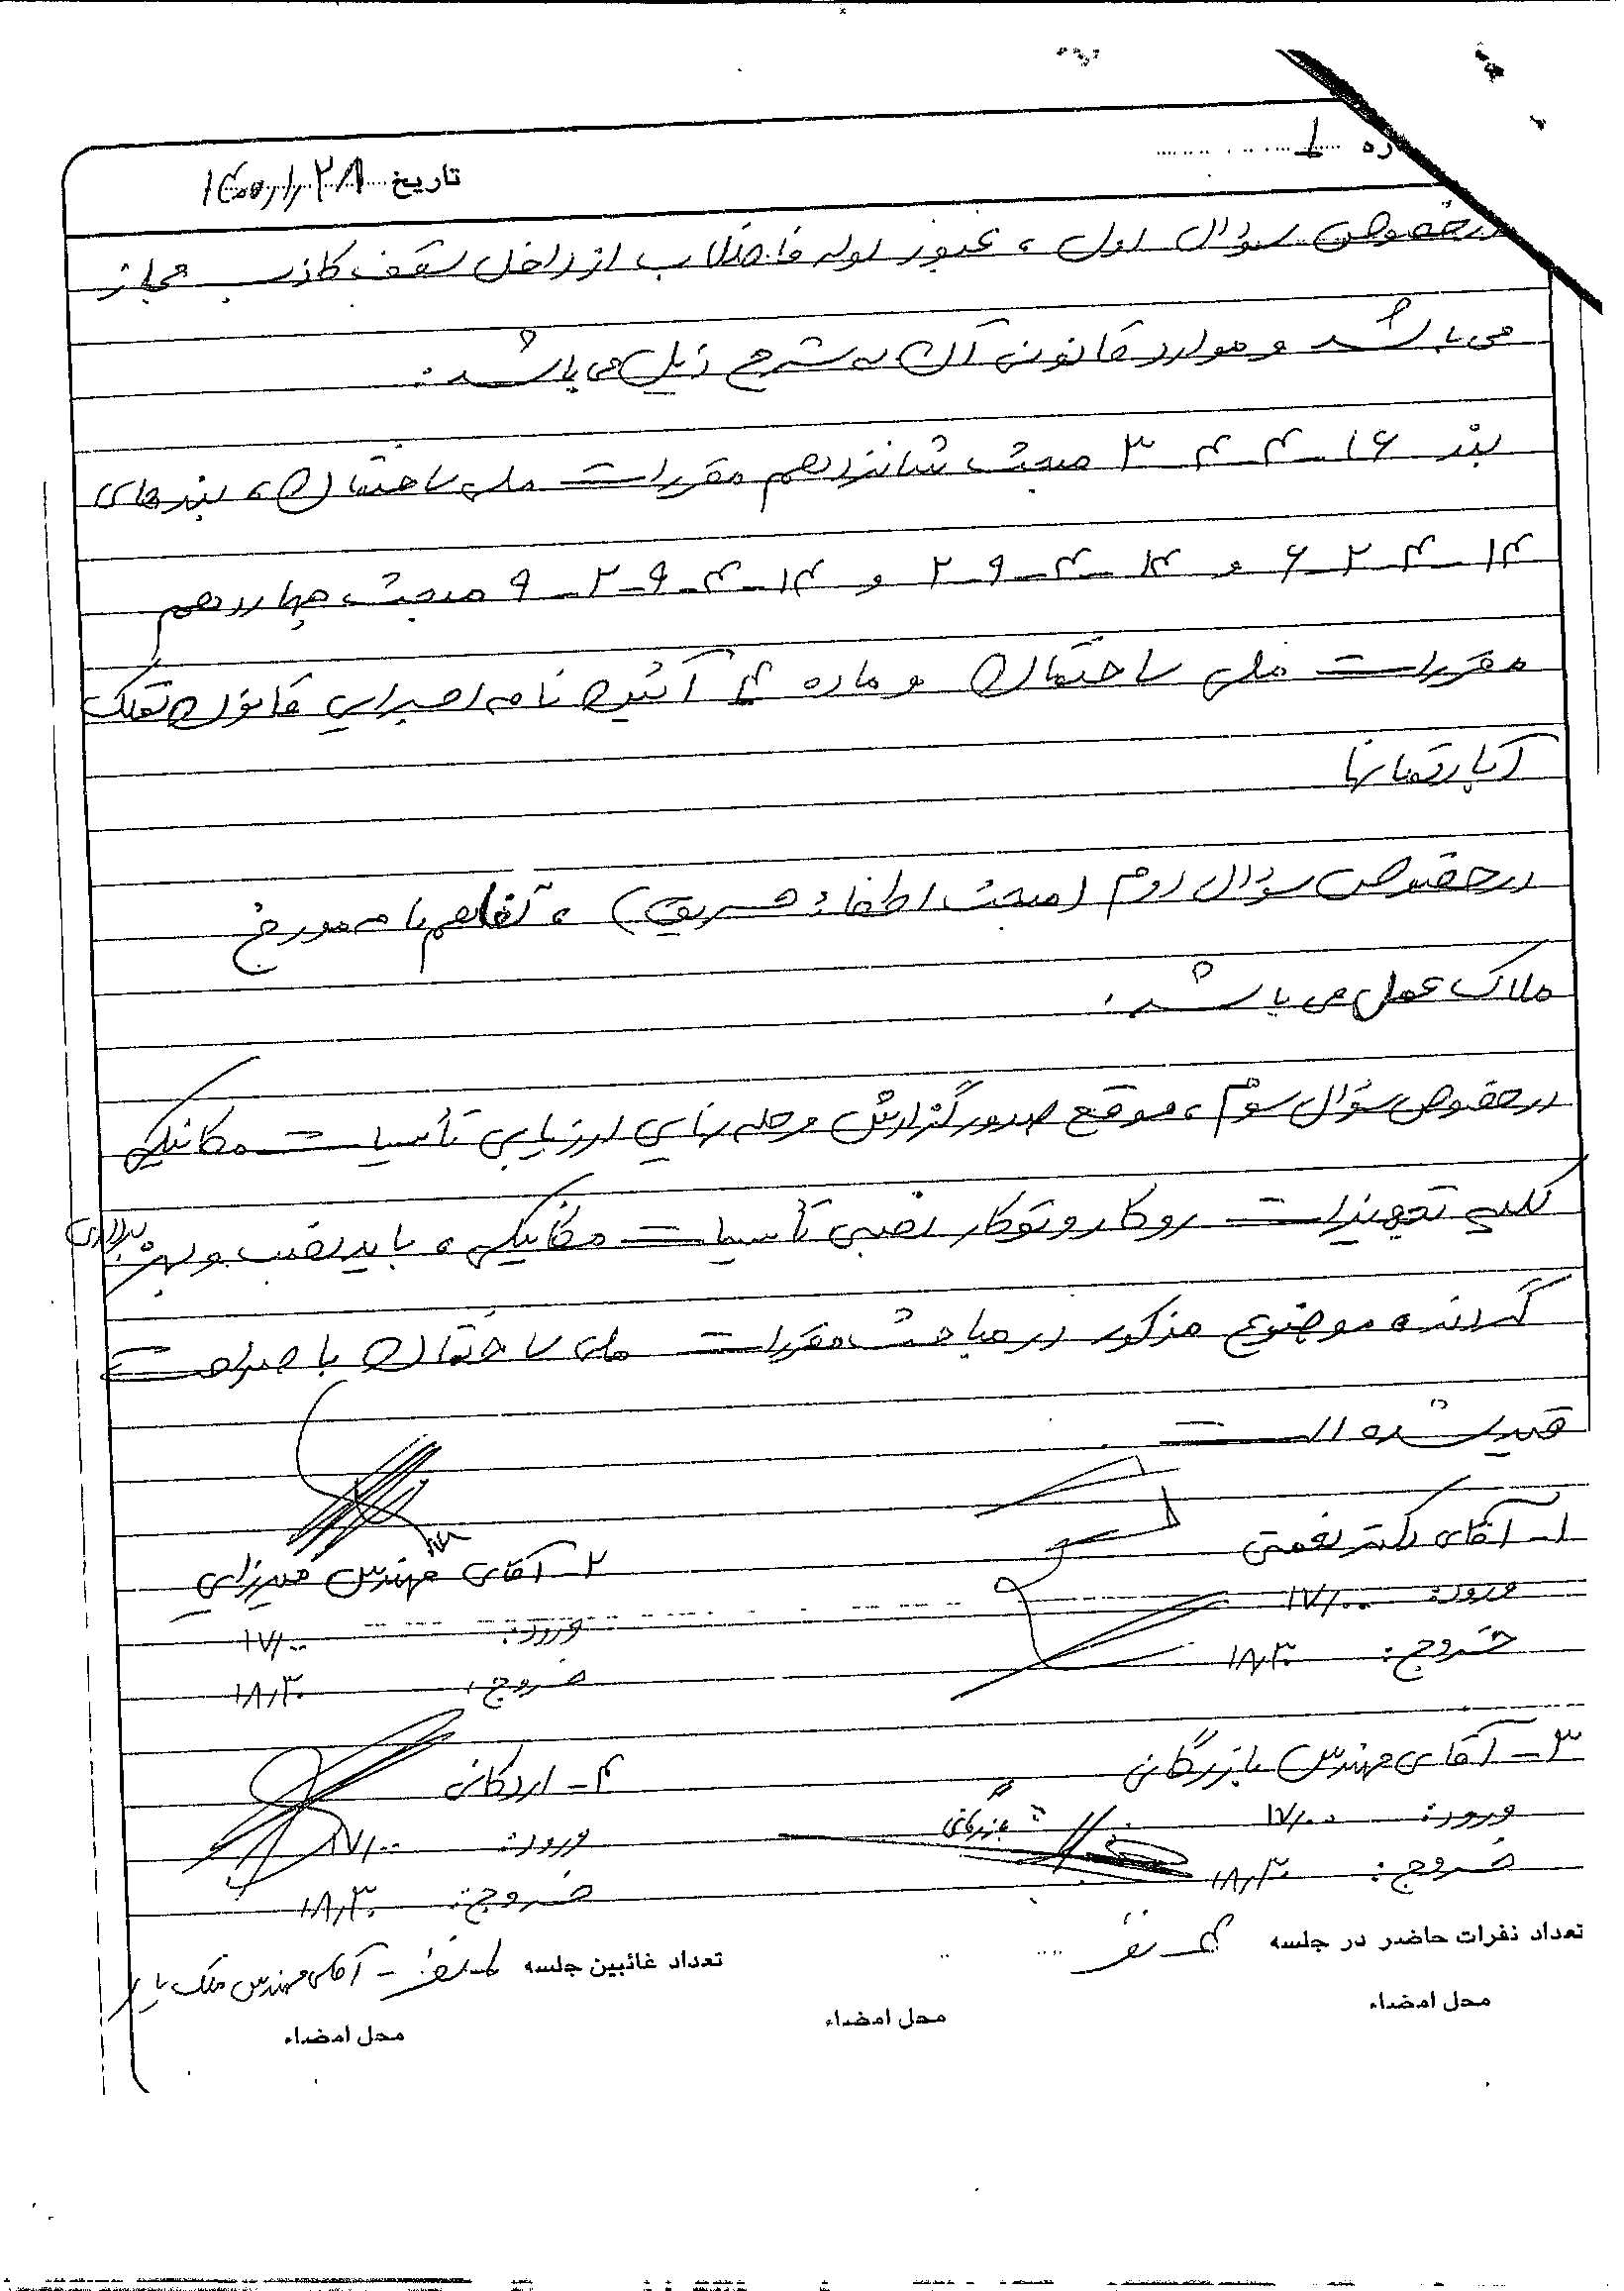 ره ۱
تاریخ ۱۴۰۰٫۱٫۲۸
درخصوص سؤال اول، عبور لوله فاضلاب از داخل سقف کاذب مجاز
می باشد و موارد قانونی آن به شرح ذیل می باشد:
بند ۱۶-۴-۴-۳ مبحث شانزدهم مقررات ملی ساختمان، بندهای
۱۴-۴-۲-۶ و ۱۴-۴-۹-۲ و ۱۴-۴-۶-۲-۹ مبحث چهاردهم
مقررات ملی ساختمان و ماده ۴ آئین نامه اجرایی قانون تملک
آپارتمانها
درخصوص سؤال دوم (مبحث اطفاء حریق)، تفاهم نامه مورخ
ملاک عمل می باشد.
درخصوص سؤال سوم، موقع صدور گزارش مرحله نهایی ارزیابی تأسیسات مکانیکی
کلیه تجهیزات روکار و توکار نصبی تأسیسات مکانیکی، باید نصب و بهره برداری
گردند. موضوع مذکور در مباحث مقررات ملی ساختمان با صراحت
قید شده است
۱- آقای دکتر نعمتی
۲- آقای مهندس میرزایی
ورود: ۱۷٫۰۰
ورود: ۱۷٫۰۰
خروج: ۱۸٫۳۰
خروج: ۱۸٫۳۰
۳- آقای مهندس بازرگانی
۴- اردکانی
ورود: ۱۷٫۰۰
بازرگانی
ورود: ۱۷٫۰۰
خروج: ۱۸٫۳۰
خروج: ۱۸٫۳۰
تعداد نفرات حاضر در جلسه ۴ نفر
تعداد غائبین جلسه ۱ نفر - آقای مهندس ملک
محل امضاء
محل امضاء
محل امضاء